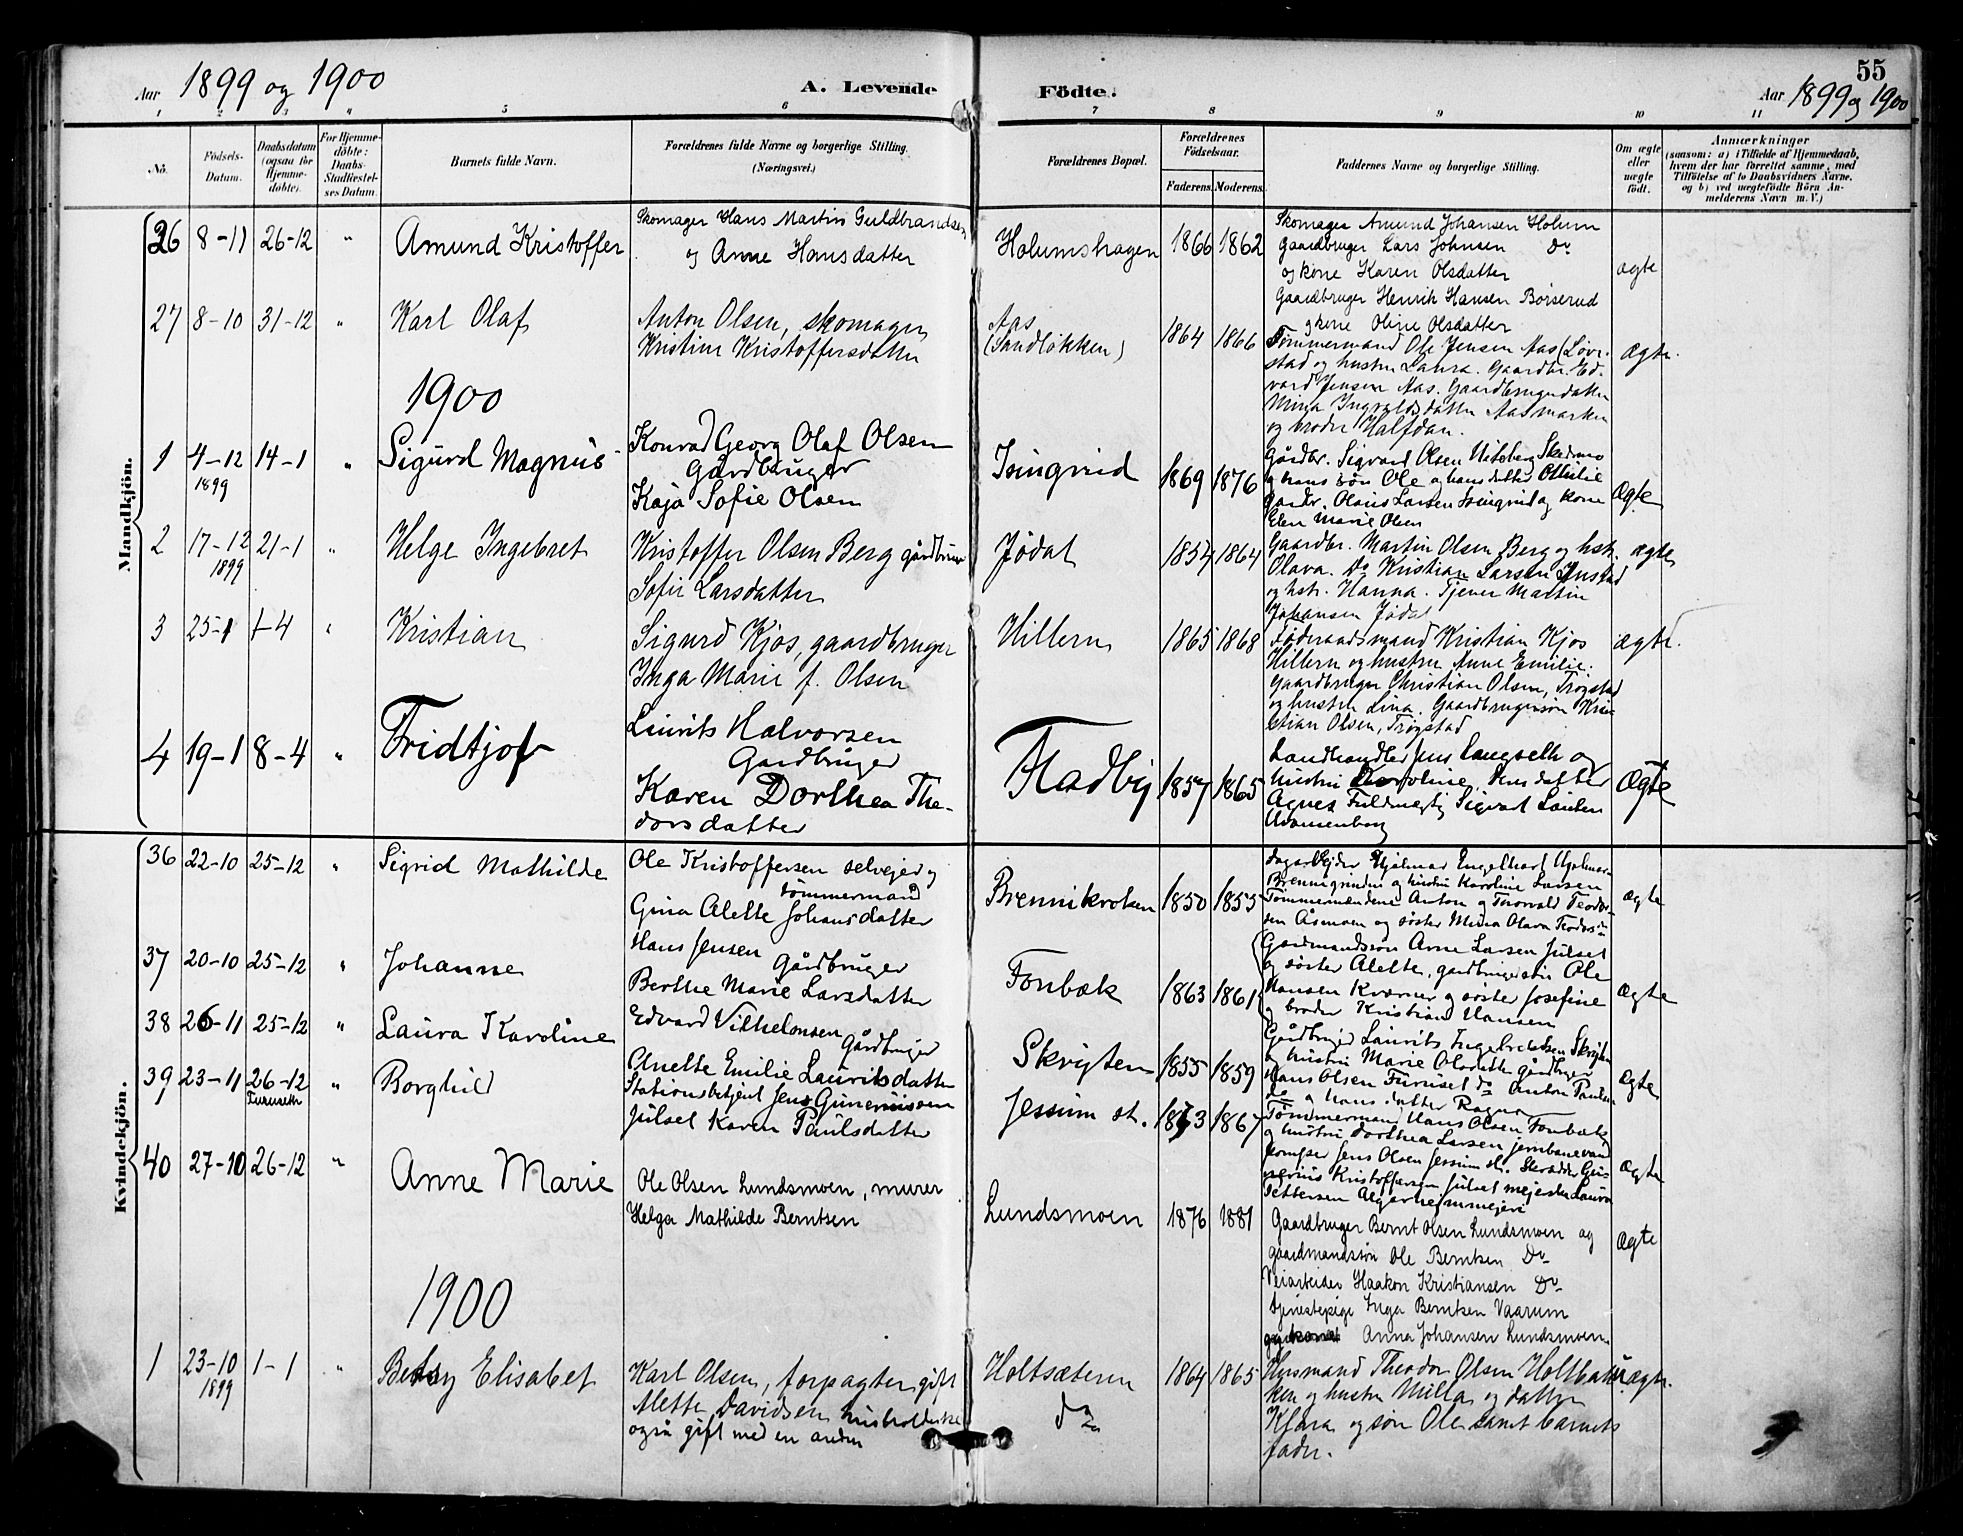 55
Aar 1899 og 1900
A. Levende Födte.
Aar 1899 og 1900
1 2 3 4 5 6 7 8 9 10 11
No.
Födsels-Datum.
Daabsdatum (ogsaa för Hjemmedöbte).
For Hjemmedöbte: Daabs-Stadfæstelses Datum.
Barnets fulde Navn.
Forældrenes fulde Navne og borgerlige Stilling. (Næringsvei.)
Forældrenes Bopæl.
Forældrenes Födselsaar.
Faderens. Moderens.
Faddernes Navne og borgerlige Stilling.
Om ægte eller uægte födt.
Anmærkninger
(saasom: a) i Tilfælde af Hjemmedaab, hvem der har forrettet samme, med Tilföielse af to Daabsvidners Navne, og b) ved uægtefödte Börn Anmelderens Navn m. V.)
Mandkjön.
26 8-11 26-12 " Amund Kristoffer
Skomager Hans Martin Guldbrandsen
og Anne Hansdatter
Holumshagen 1866 1862
Skomager Amund Johansen Holum
Gaardbruger Lars Johnsen Do
og kone Karen Olsdatter
Gaardbruger Henrik Hansen Börserud
og kone Oline Olsdatter
ægte
27 8-10 31-12 " Karl Olaf
Anton Olsen, skomager
Kristine Kristoffersdatter
Aas
(Sandlökken)
1864 1866
Tömmermand Ole Jensen Aas (Løv-
stad og hustru Laura. Gaardbr. Ed-
vard Jensen Aas. Gaardbrugerdatter
Mina Ingvaldsdatter Aasmarken
og broder Halfdan.
ægte
1900
1 4-12 1899 14-1 " Sigurd Magnus
Konrad Georg Olaf Olsen
Gårdbruger
Kaja Sofie Olsen
Isingrud 1869 1876
Gårdbr. Sigvard Olsen Skedsmo
og hans sön Ole og hans datter Othilie
Gardr. Olaus Larsen Isingrud og kone
Elen Marie Olsen
ægte
2 17-12 1899 21-1 " Helge Ingebret
Kristoffer Olsen Berg gårdbruger
Sofie Larsdatter
Jødal 1854 1864
Gaardbr. Martin Olsen Berg og hstr.
Olava. Do Kristian Larsen
og hstr. Hanna. Tjener Martin
Johansen Jødal
ægte
3 25-1 1-4 " Kristian
Sigurd Kjos, gaardbruger
Inga Marie f. Olsen
Hillern 1865 1868
Föderaadsmand Kristian Kjos
Hillern og hustru Anne Emilie.
Gaardbruger Christian Olsen, Trøgstad
og hustru Lina. Gaardbrugersøn Kri-
stian Olsen, Trøgstad
ægte
4 19-1 8-4 " Fridtjof
Laurits Halvorsen
Gardbruger
Karen Dorthea The-
dorsdatter
Fladby 1857 1865
Landhandler Jens Langseth og
hustru Karoline, datter
Agnes Fuldmegtig Sigvart Lauten
ægte
Kvindekjön.
36 22-10 25-12 " Sigrid Mathilde
Ole Kristoffersen selvejer og
tömmermand
Gina Alette Johansdatter
Brennikroken 1850 1855
Dagarbejder Hjalmar Engelhart
Brennigrinden og hustru Karoline Larsen
Tömmermændene Anton og Torvald Teodor-
sen Åsmoen og söster Mina Olava
ægte
37 20-10 25-12 " Johanne
Hans Jensen
Gårdbruger
Berthe Marie Larsdatter
Fonbæk 1863 1861
Gardmandssön Arne Larsen Julset
og söster Alette, gardbrugersön Ole
Hansen Kværner og söster Josefine
og broder Kristian Hansen
ægte
38 26-11 25-12 " Laura Karoline
Edvard Vilhelmsen
Gårdbruger
Anette Emilie Lauritsdatter
Skrysten 1855 1859
Gårdbruger Laurits Ingebretsen
og hustru Marie Olsdatter gårdbruger
Hans Olsen Furuset do Anton
do og hans datter Ragna
ægte
39 23-11 26-12 Furuseth " Borghild
Stationsbetjent Jens Gunerius
Julset Karen Paulsdatter
Jessum st. 1873 1867
Tömmermand Hans Olsen Fonbæk
og hustru Dorthea Larsen jernbane
Jens Olsen Jessum st. Skrædder Gu-
nerius Kristoffersen Julset mejerske Laura
Pettersen Algarheimmejeri
ægte
40 27-10 26-12 " Anne Marie
Ole Olsen Lundsmoen, murer
Helga Mathilde Berntsen
Lundsmoen 1876 1881
Gaardbruger Bernt Olsen Lundsmoen og
gaardmandssön Ole Berntsen Do
Veiarbeider Haakon Kristiansen Do
Tjenestepige Inga Berntsen Vaarum
Anna Johansen Lundsmoen
ægte
1900
1 23-10 1899 1-1 " Betsy Elisabet
Karl Olsen, forpagter, gift
Mette Davidsen
også gift med en anden
Holtsæteren
do
1864 1865
Husmand Theodor Olsen
og hustru Milla og datter
Klara og søn Ole samt barnets
fader.
uægte